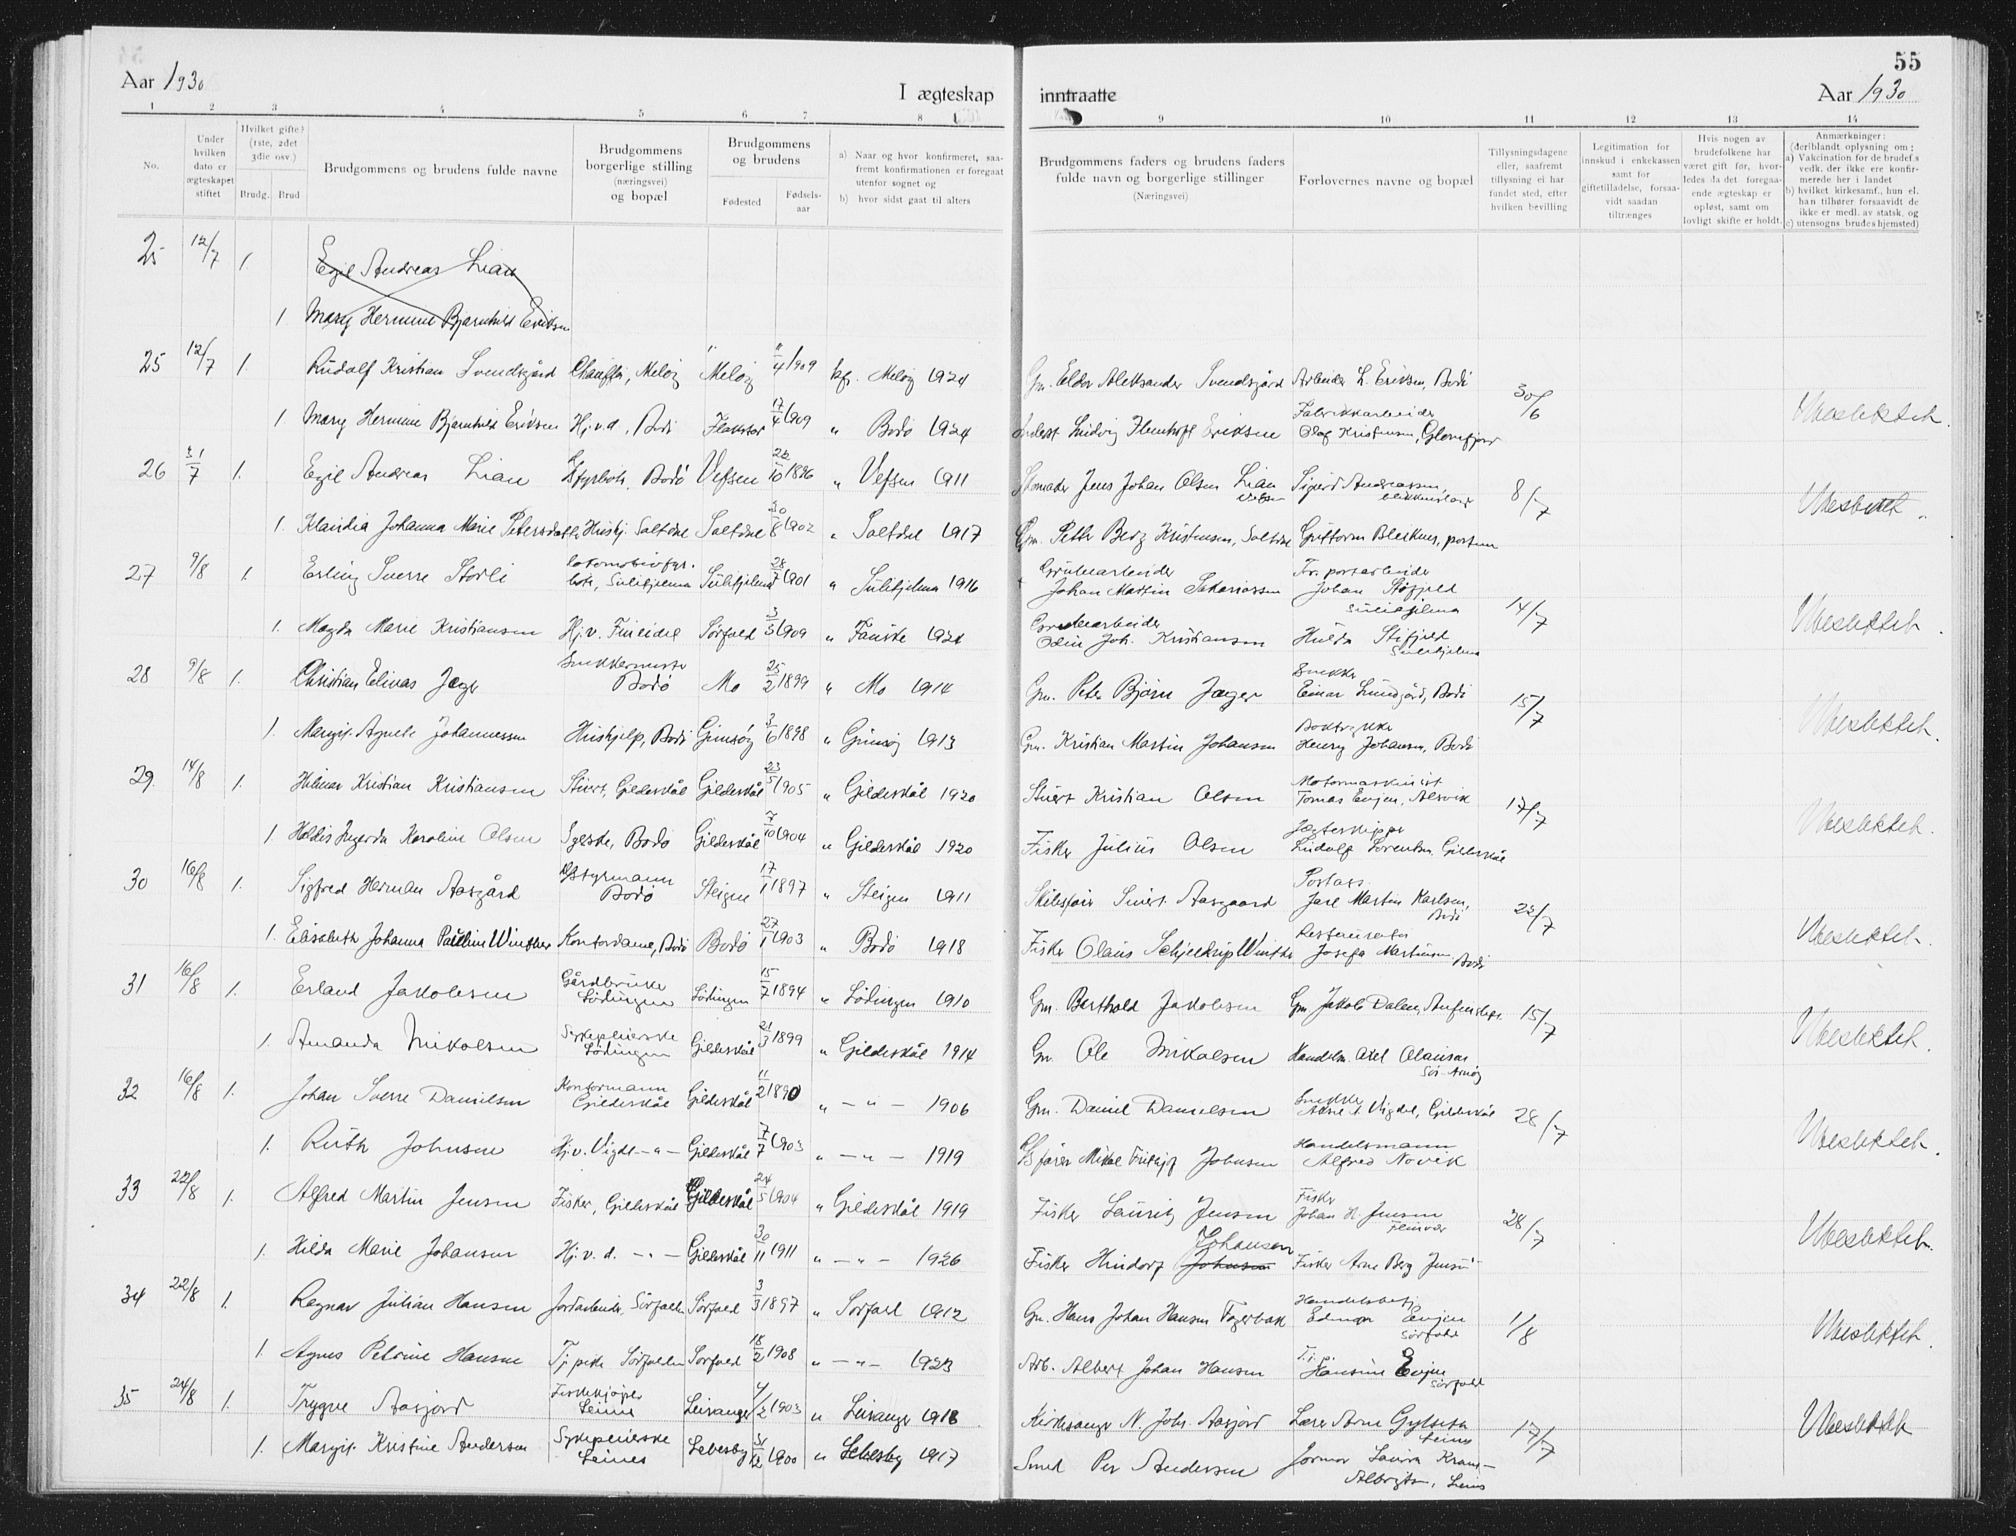 55
Aar 1930 I ægteskap inntraatte Aar 1930
1 2 3 4 5 6 7 8 9 10 11 12 13 14
No.
Under hvilken dato er ægteskapet stiftet
Hvilket gifte? (1ste, 2det 3die osv.)
Brudg. Brud
Brudgommens og brudens fulde navne
Brudgommens borgerlige stilling (næringsvei) og bopæl
Brudgommens og brudens
Fødested Fødsels-aar
a) Naar og hvor konfirmeret, saa-fremt konfirmationen er foregaat utenfor sognet og
b) hvor sidst gaat til alters
Brudgommens faders og brudens faders fulde navn og borgerlige stillinger (Næringsvei)
Forlovernes navne og bopæl
Tillysningsdagene eller, saafremt tillysning ei har fundet sted, efter hvilken bevilling
Legitimation for innskud i enkekassen samt for giftetilladelse, forsaa-vidt saadan tiltrænges
Hvis nogen av brudefolkene har været gift før, hvor-ledes da det foregaa-ende ægteskap er opløst, samt om lovligt skifte er holdt.
Anmærkninger: (deriblandt oplysning om: a) Vakcination før de brudef.s vedk. der ikke ere konfir-merede her i landet b) hvilket kirkesamf., hun el. han tilhører forsaavidt de ikke er medl. av statsk. og c) utensogns brudes hjemsted)
25 12/7 1. Egil Andreas Lian
1 Mary Hermine Bjarnhild Eriksen
25 12/7 1. Rudolf Kristian Svendsgård Chauffør, Meløy Meløy 11/4 1909 kf. Meløy 1924 Gm. Eldor Aleksander Svendsgård Arbeider L. Eriksen, Bodø 30/6
1 Mary Hermine Bjarnhild Eriksen Hj.v.d., Bodø Flakstad 17/4 1909 " Bodø 1924 Ludvig Eriksen Fabrikkarbeider Olaf Kristensen, Glomfjord Ubeslektet.
26 31/7 1. Egil Andreas Lian Fyrbøt. Bodø Vefsen 22/10 1896 " Vefsen 1911 Jens Johan Olsen Lian Vefsen Sigurd Andreassen, 8/7
1. Klaudia Johanna Marie Petersdatter Hushj. Saltdal Saltdal 30/8 1902 " Saltdal 1917 Gm. Petter Berg Kristensen, Saltdal Guttorm Bleiknes, Ubeslektet.
27 9/8 1. Erling Sverre Storli lokomotivfyr-bøter, Sulitjelma Sulitjelma 28/7 1901 " Sulitjelma 1916 Grubearbeider Johan Martin Sakariassen Tr.portarbeider Johan Stifjeld Sulitjelma 14/7
1. Magda Marie Kristiansen Hj.v. Fineidet Sørfold 3/3 1909 " Fauske 1924 Grubearbeider Odin Joh. Kristiansen Hulda Stifjeld Sulitjelma Ubeslektet.
28 9/8 1. Christian Elinas Jæger Snekkermester Bodø Mo 25/2 1899 " Mo 1914 Gm. Peter Bjørn Jæger Snekker Einar Lundgård, Bodø 15/7
1. Margit Agnete Johannessen Hushjelp, Bodø Gimsøy 3/6 1898 " Gimsøy 1913 Gm. Kristian Martin Johansen Boktrykker Henry Johansen, Bodø Ubeslektet.
29. 14/8 1. Hilmar Kristian Kristiansen Stuert, Gildeskål Gildeskål 23/5 1905 " Gildeskål 1920 Stuert Kristian Olsen Motormaskinist Tomas Evjen, Alsvik 17/7
1. Haldis Ingerda Karoline Olsen Syerske, Bodø Gildeskål 7/10 1904 " Gildeskål 1920 Fisker Julius Olsen Jægteskipper Ludolf Lorentsen Gildeskål Ubeslektet.
30 16/8 1. Sigfred Herman Aasgård Styrmann Bodø Steigen 17/1 1897 " Steigen 1911 Sivert Aasgaard Postass. Jarl Martin Karlsen, Bodø 22/7
1. Elisabeth Johanna Pauline Winther Kontordame, Bodø Bodø 27/1 1903 " Bodø 1918 Fisker Olaus Schjelderup Winther Josefa Martinsen Bodø Ubeslektet.
31 16/8 1. Erland Jakobsen Gårdbruker Lødingen Lødingen 15/7 1894 " Lødingen 1910 Gm. Berthold Jakobsen Gm Jakob Dalen, 15/7
1. Amanda Mikalsen Sykepleierske Lødingen Gildeskål 21/3 1899 " Gildeskål 1914 Gm. Ole Mikalsen Handelsm. Axel Olausen Sør-Arnøy Ubeslektet.
32 16/8 1. Johan Sverre Danielsen Kontormann Gildeskål Gildeskål 11/2 1890 " - " - 1906 Gm. Daniel Danielsen Snekker Vigdel, Gildeskål 28/7
1. Ruth Johnsen Hj.v. Vigdel - " - Gildeskål 7/7 1903 " - " - 1919 Mikal Fritjof Johnsen Handelsmann Alfred Novik Ubeslektet.
33 22/8 1. Alfred Martin Jensen Fisker, Gildeskål Gildeskål 24/5 1904 " Gildeskål 1919 Fisker Lauritz Jensen Fisker Johan H. Jensen Fleinvær 28/7
1. Hilda Marie Johansen Hj.v.d. - " - Gildeskål 30/11 1911 " - " - 1926 Fisker Hindorf Johnsen Johansen Fisker Arne Berg Jensen Ubeslektet.
34 22/8 1. Ragnar Julian Hansen Jordarbeider, Sørfolden Sørfold 3/3 1897 " Sørfold 1912 Gm. Hans Johan Hansen Fagerbakk Handelsbetj. Edmar Evjen Sørfold 1/8
1. Agnes Petrine Hansen Tj.pike Sørfolden Sørfold 18/2 1908 " - " - 1923 Arb. Albert Johan Hansen T.j.p. Hansine Evjen Sørfold Ubeslektet.
35 24/8 1. Trygve Aasjord Fiskekjøper Leines Leiranger 4/2 1903 " Leiranger 1918 Kirkesanger N. Johs. Aasjord Lærer Arne Gylseth Leines 17/7
1. Margit Kristine Andersen Sykepleierske Leines Lebesby 31/12 1900 " Lebesby 1917 Smed Per Andersen Jormor Laura Krane-Albrigtsen, Leines Ubeslektet